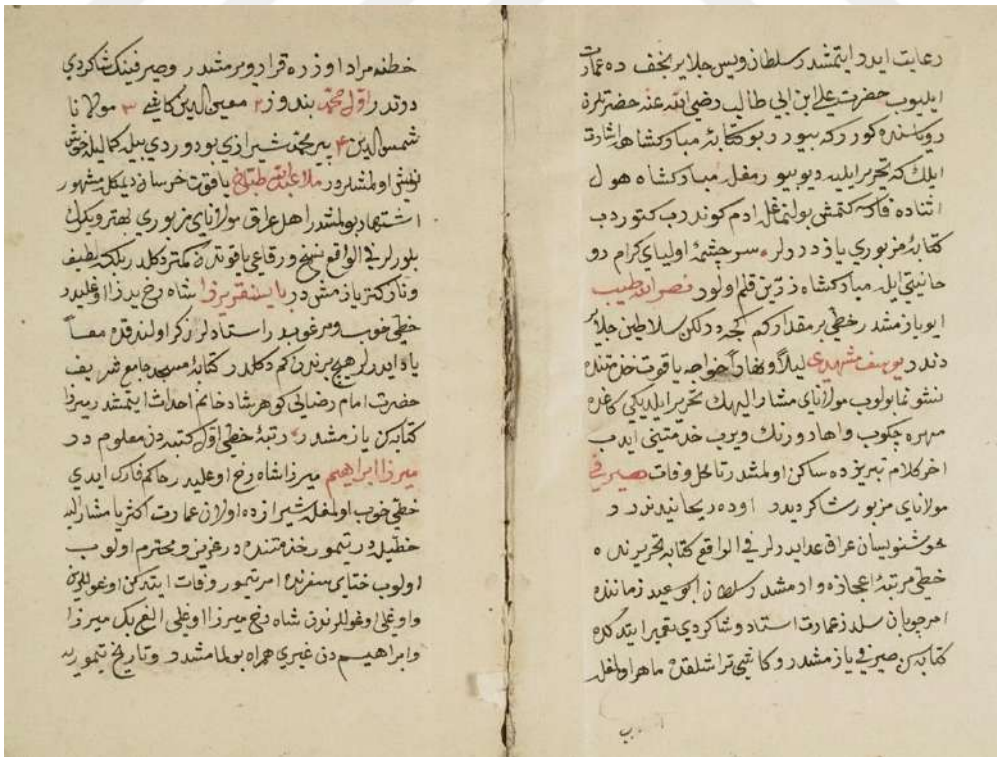 رعایت ایدر ایتمشدر سلطان ویس جلایر نجف ده عمارت
ایلیوب حضرت علی ابن ابی طالب رضی الله عنه حضرتلرن
رویاسنده کوررکه بیوررر بو کتابهٔ مبارکشاهه اشارت
ایلک که تحریر ایلیه دیو بیورمغله مبارکشاه هول
اثناده فاکه کتمش بولنمغله ادم کوندرب کتوردب
کتابهٔ مزبوری یازدردلر سرچشمهٔ اولیای کرام رو
حانیتی ایله مبارکشاه زرین قلم اولور نصر الله طبیب
ایو یازمشدر خطی بر مقدار کم کجه در لکن سلاطین جلایر
دندر یوسف مشهدی لیلاً و نهاراً خواجه یاقوت خدمتنده
نشو نما بولوب مولانای مشار الیه بک تحریر ایلدیکی کاغده
مهره چکوب واهار و رنک ویرب خدمتنی ایدب
اخر کلام تبریزده ساکن اولمشدر تا محل وفات صیرفی
مولانای مزبور شاکردیدر اوده ریحانیدندر و
خوشنویسان عراق عد ایدرلر فی الواقع کتابه تحریرنده
خطی مرتبهٔ اعجازه وارمشدر سلطان ابو عید زماننده
امر جوبان سلدز عمارت استاد و شاکردی تعمیر ایتدکده
کتابه سن صیرفی یازمشدر و کاشی تراشلقده ماهر اولمغله
خطنه مراد اوزره قرار ویرمشدر و صیرفینک شاکردی
دوتدر اول محمد بندوز ۲ معین الدین کاشی ۳ مولانا
شمس الدین ۴ پیر محمد شیرازی بو دوردی بیله کمالیله خوش
نویس اولمشلردر ملا عبد الله طباخ یاقوت خراسان دیمکله مشهور
اشتهار بولمشدر اهل عراق مولانای مزبوری بهتر ویکرک
بلورلر فی الواقع نسخ و رقاعی یاقوتدن کمتر دکلدر بلکه لطیف
ونازکتر یازمش در بایسنقر میرزا شاه رخ میرزا اوغلیدر
خطی خوب و مرغوبدر استادلر ذکر اولندقده معاً
یاد ایدرلر هیچ برندن کم دکلدر کتابهٔ مسجد جامع شریف
حضرت امام رضایی کوهر شاد خانم احداث ایتمشدر میرزا
کتابه سن یازمشدر رتبهٔ خطی اول کتبه دن معلوم در
میرزا ابراهیم میرزا شاه رخ اوغلیدر حاکم فارس ایدی
خطی خوب اولمغله شیرازده اولان عمارت اکثریا مشار الیه
خطیلدر تیمور خدمتنده در عزیز و محترم اولوب
اولوب ختای سفرنده امر تیمور وفات ایتدکن اوغوللری
و اوغلی اوغوللرندن شاه رخ میرزا اوغلی الغ بک میرزا
وابراهیم دن غیری همراه بولمامشدر و تاریخ تیموریه